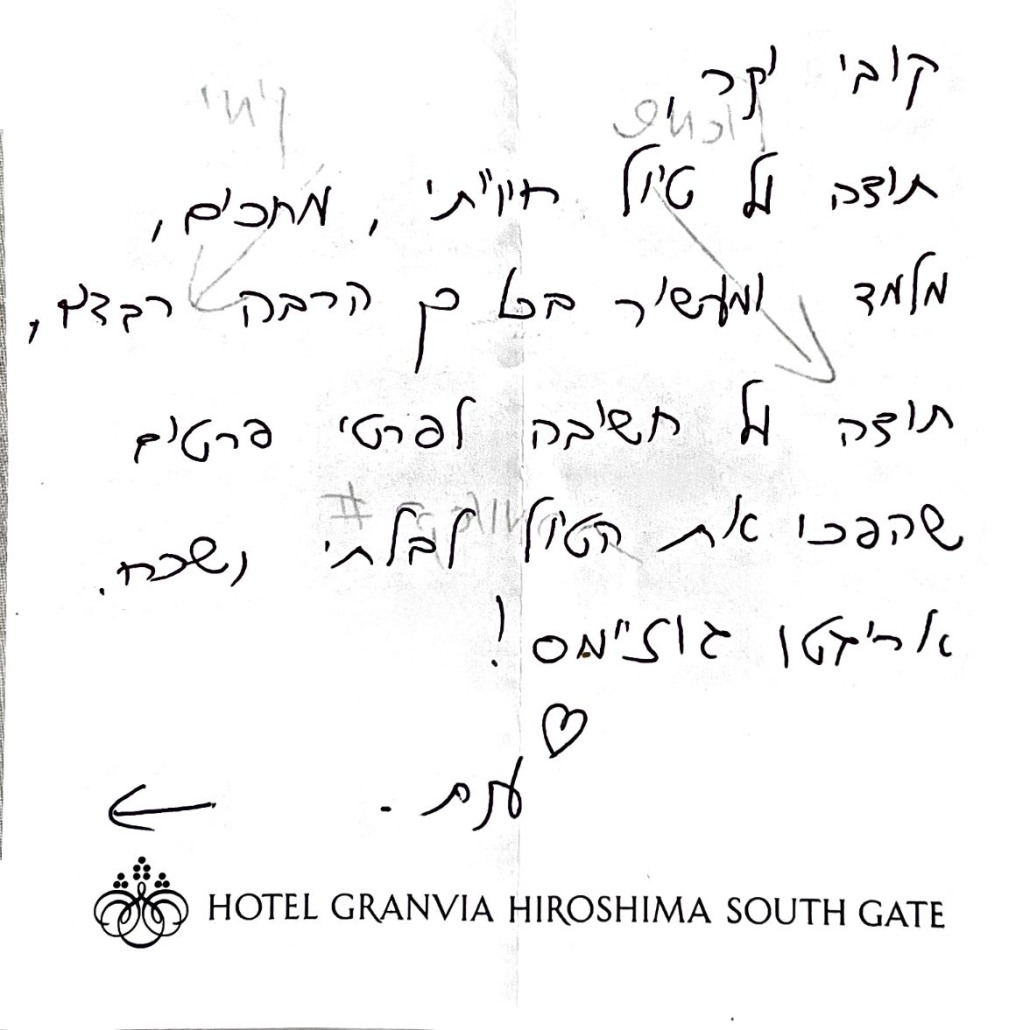 קובי יקר,
תודה על טיול חווייתי, מחכים,
מלמד ומעשיר בכל כך הרבה רבדים,
תודה על חשיבה לפרטי פרטים
שהפכו את הטיול לבלתי נשכח.
אריגטו גוזיימס!
♡
←
HOTEL GRANVIA HIROSHIMA SOUTH GATE